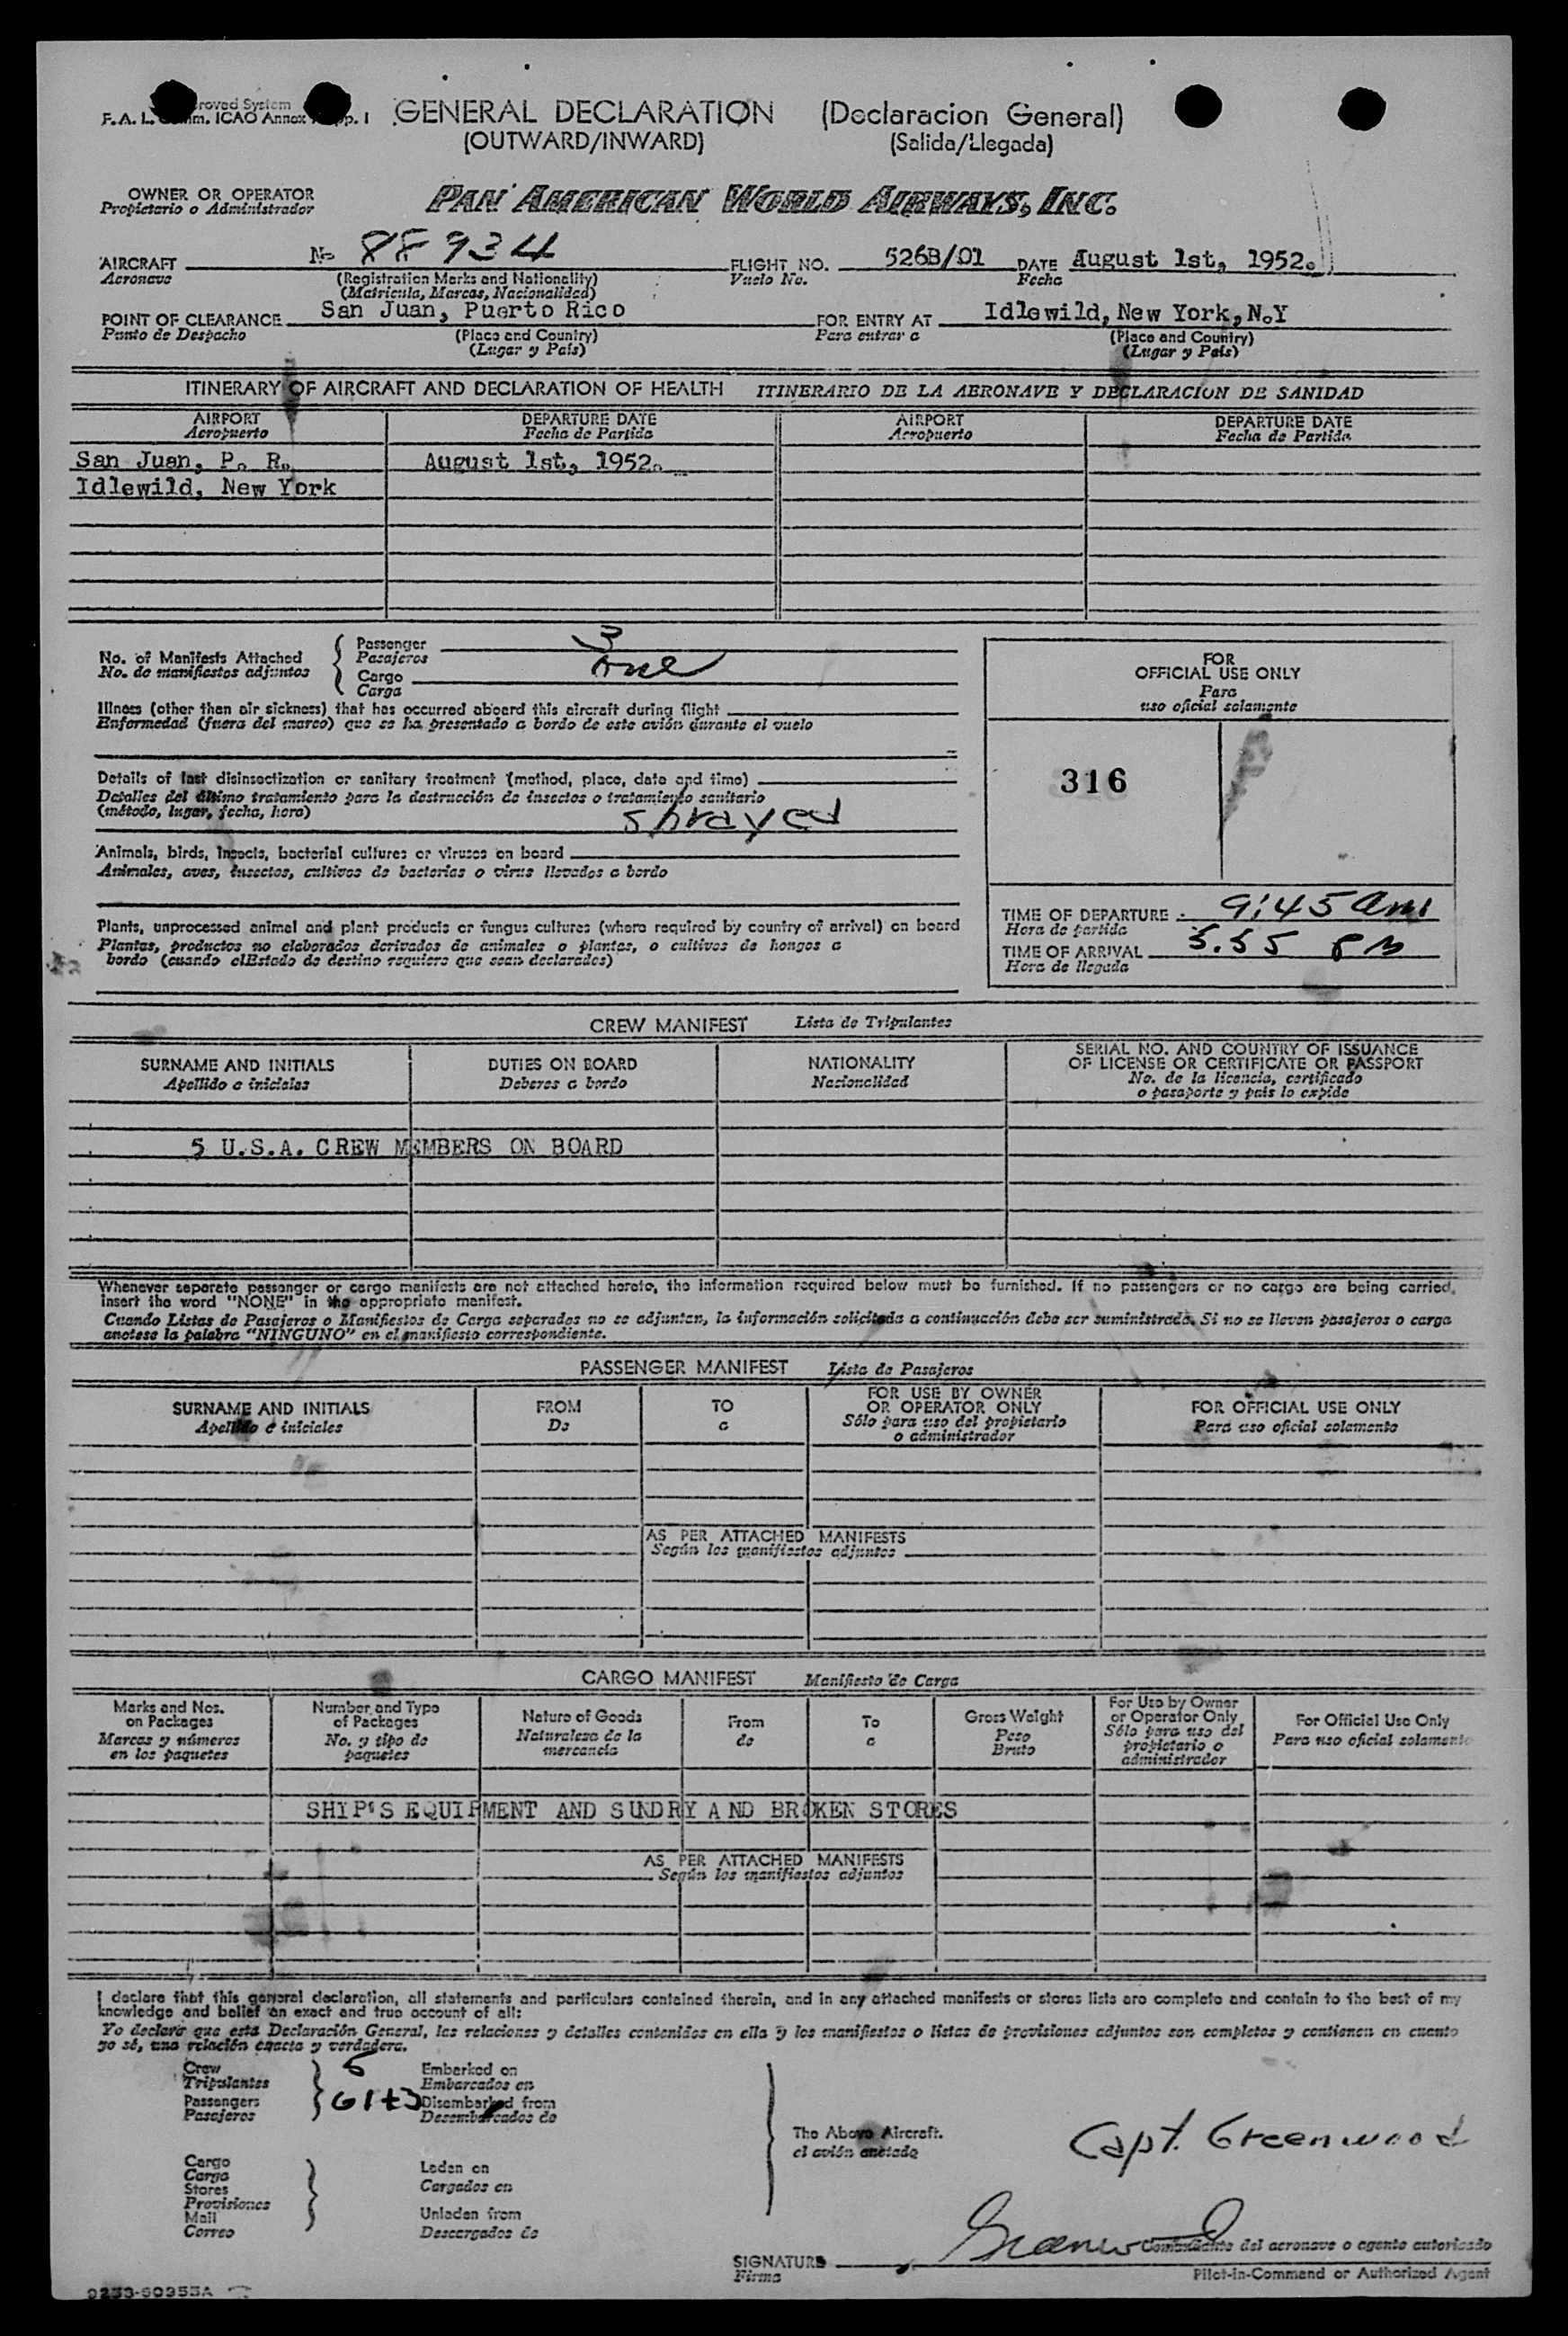 GENERAL DECLARATION (Declaracion General)
(OUTWARD/INWARD) (Salida/Llegada)
OWNER OR OPERATOR PAN AMERICAN WORLD AIRWAYS, INC.
Propietario o Administrador
AIRCRAFT N- 88934 FLIGHT NO. 526B/01 DATE August 1st, 1952.
Aeronave (Registration Marks and Nationality) Vuelo No. Fecha
(Matricula, Marcas, Nacionalidad)
POINT OF CLEARANCE San Juan, Puerto Rico FOR ENTRY AT Idlewild, New York, N.Y
Punto de Despacho (Place and Country) Para entrar a (Place and Country)
(Lugar y País) (Lugar y País)
ITINERARY OF AIRCRAFT AND DECLARATION OF HEALTH ITINERARIO DE LA AERONAVE Y DECLARACION DE SANIDAD
AIRPORT DEPARTURE DATE AIRPORT DEPARTURE DATE
Aeropuerto Fecha de Partida Aeropuerto Fecha de Partida
San Juan, P. R. August 1st, 1952.
Idlewild, New York
No. of Manifests Attached Passenger 3
No. de manifiestos adjuntos Pasajeros
Cargo one
Carga
Illness (other than air sickness) that has occurred aboard this aircraft during flight
Enfermedad (fuera del mareo) que se ha presentado a bordo de este avión durante el vuelo
Details of last disinsectization or sanitary treatment (method, place, date and time)
Detalles del último tratamiento para la destrucción de insectos o tratamiento sanitario
(método, lugar, fecha, hora) sprayed
Animals, birds, insects, bacterial cultures or viruses on board
Animales, aves, insectos, cultivos de bacterias o virus llevados a bordo
Plants, unprocessed animal and plant products or fungus cultures (where required by country of arrival) on board
Plantas, productos no elaborados derivados de animales o plantas, o cultivos de hongos a
bordo (cuando elEstado de destino requiere que sean declarados)
FOR
OFFICIAL USE ONLY
Para
uso oficial solamente
316
TIME OF DEPARTURE 9:45 am
Hora de partida
TIME OF ARRIVAL 5.55 PM
Hora de llegada
CREW MANIFEST Lista de Tripulantes
SURNAME AND INITIALS DUTIES ON BOARD NATIONALITY SERIAL NO. AND COUNTRY OF ISSUANCE
Apellido e iniciales Deberes a bordo Nacionalidad OF LICENSE OR CERTIFICATE OR PASSPORT
No. de la licencia, certificado
o pasaporte y país lo expide
5 U.S.A. CREW MEMBERS ON BOARD
Whenever separate passenger or cargo manifests are not attached hereto, the information required below must be furnished. If no passengers or no cargo are being carried,
insert the word "NONE" in the appropriate manifest.
Cuando Listas de Pasajeros o Manifiestos de Carga separados no se adjuntan, la información solicitada a continuación debe ser suministrada. Si no se llevan pasajeros o carga
anotese la palabra "NINGUNO" en el manifiesto correspondiente.
PASSENGER MANIFEST Lista de Pasajeros
SURNAME AND INITIALS FROM TO FOR USE BY OWNER FOR OFFICIAL USE ONLY
Apellido e iniciales De a OR OPERATOR ONLY Para uso oficial solamente
Sólo para uso del propietario
o administrador
AS PER ATTACHED MANIFESTS
Según los manifiestos adjuntos
CARGO MANIFEST Manifiesto de Carga
Marks and Nos. Number and Type Nature of Goods From To Gross Weight For Use by Owner For Official Use Only
on Packages of Packages Naturaleza de la de a Peso or Operator Only Para uso oficial solamente
Marcas y números No. y tipo de mercancía Bruto Sólo para uso del
en los paquetes paquetes propietario o
administrador
SHIP'S EQUIPMENT AND SUNDRY AND BROKEN STORES
AS PER ATTACHED MANIFESTS
Según los manifiestos adjuntos
I declare that this general declaration, all statements and particulars contained therein, and in any attached manifests or stores lists are complete and contain to the best of my
knowledge and belief an exact and true account of all:
Yo declaro que está Declaración General, las relaciones y detalles contenidos en ella y los manifiestos o listas de provisiones adjuntos son completos y contienen en cuanto
yo sé, una relación exacta y verdadera.
Crew 5 Embarked on
Tripulantes Embarcados en
Passengers 61+3 Disembarked from
Pasajeros Desembarcados de
The Above Aircraft.
el avión anotado
Capt. Greenwood
Cargo Laden on
Carga Cargados en
Stores
Provisiones
Mail Unladen from
Correo Descargados de
SIGNATURE Greenwood Comandante del aeronave o agente autorizado
Firma Pilot-in-Command or Authorized Agent